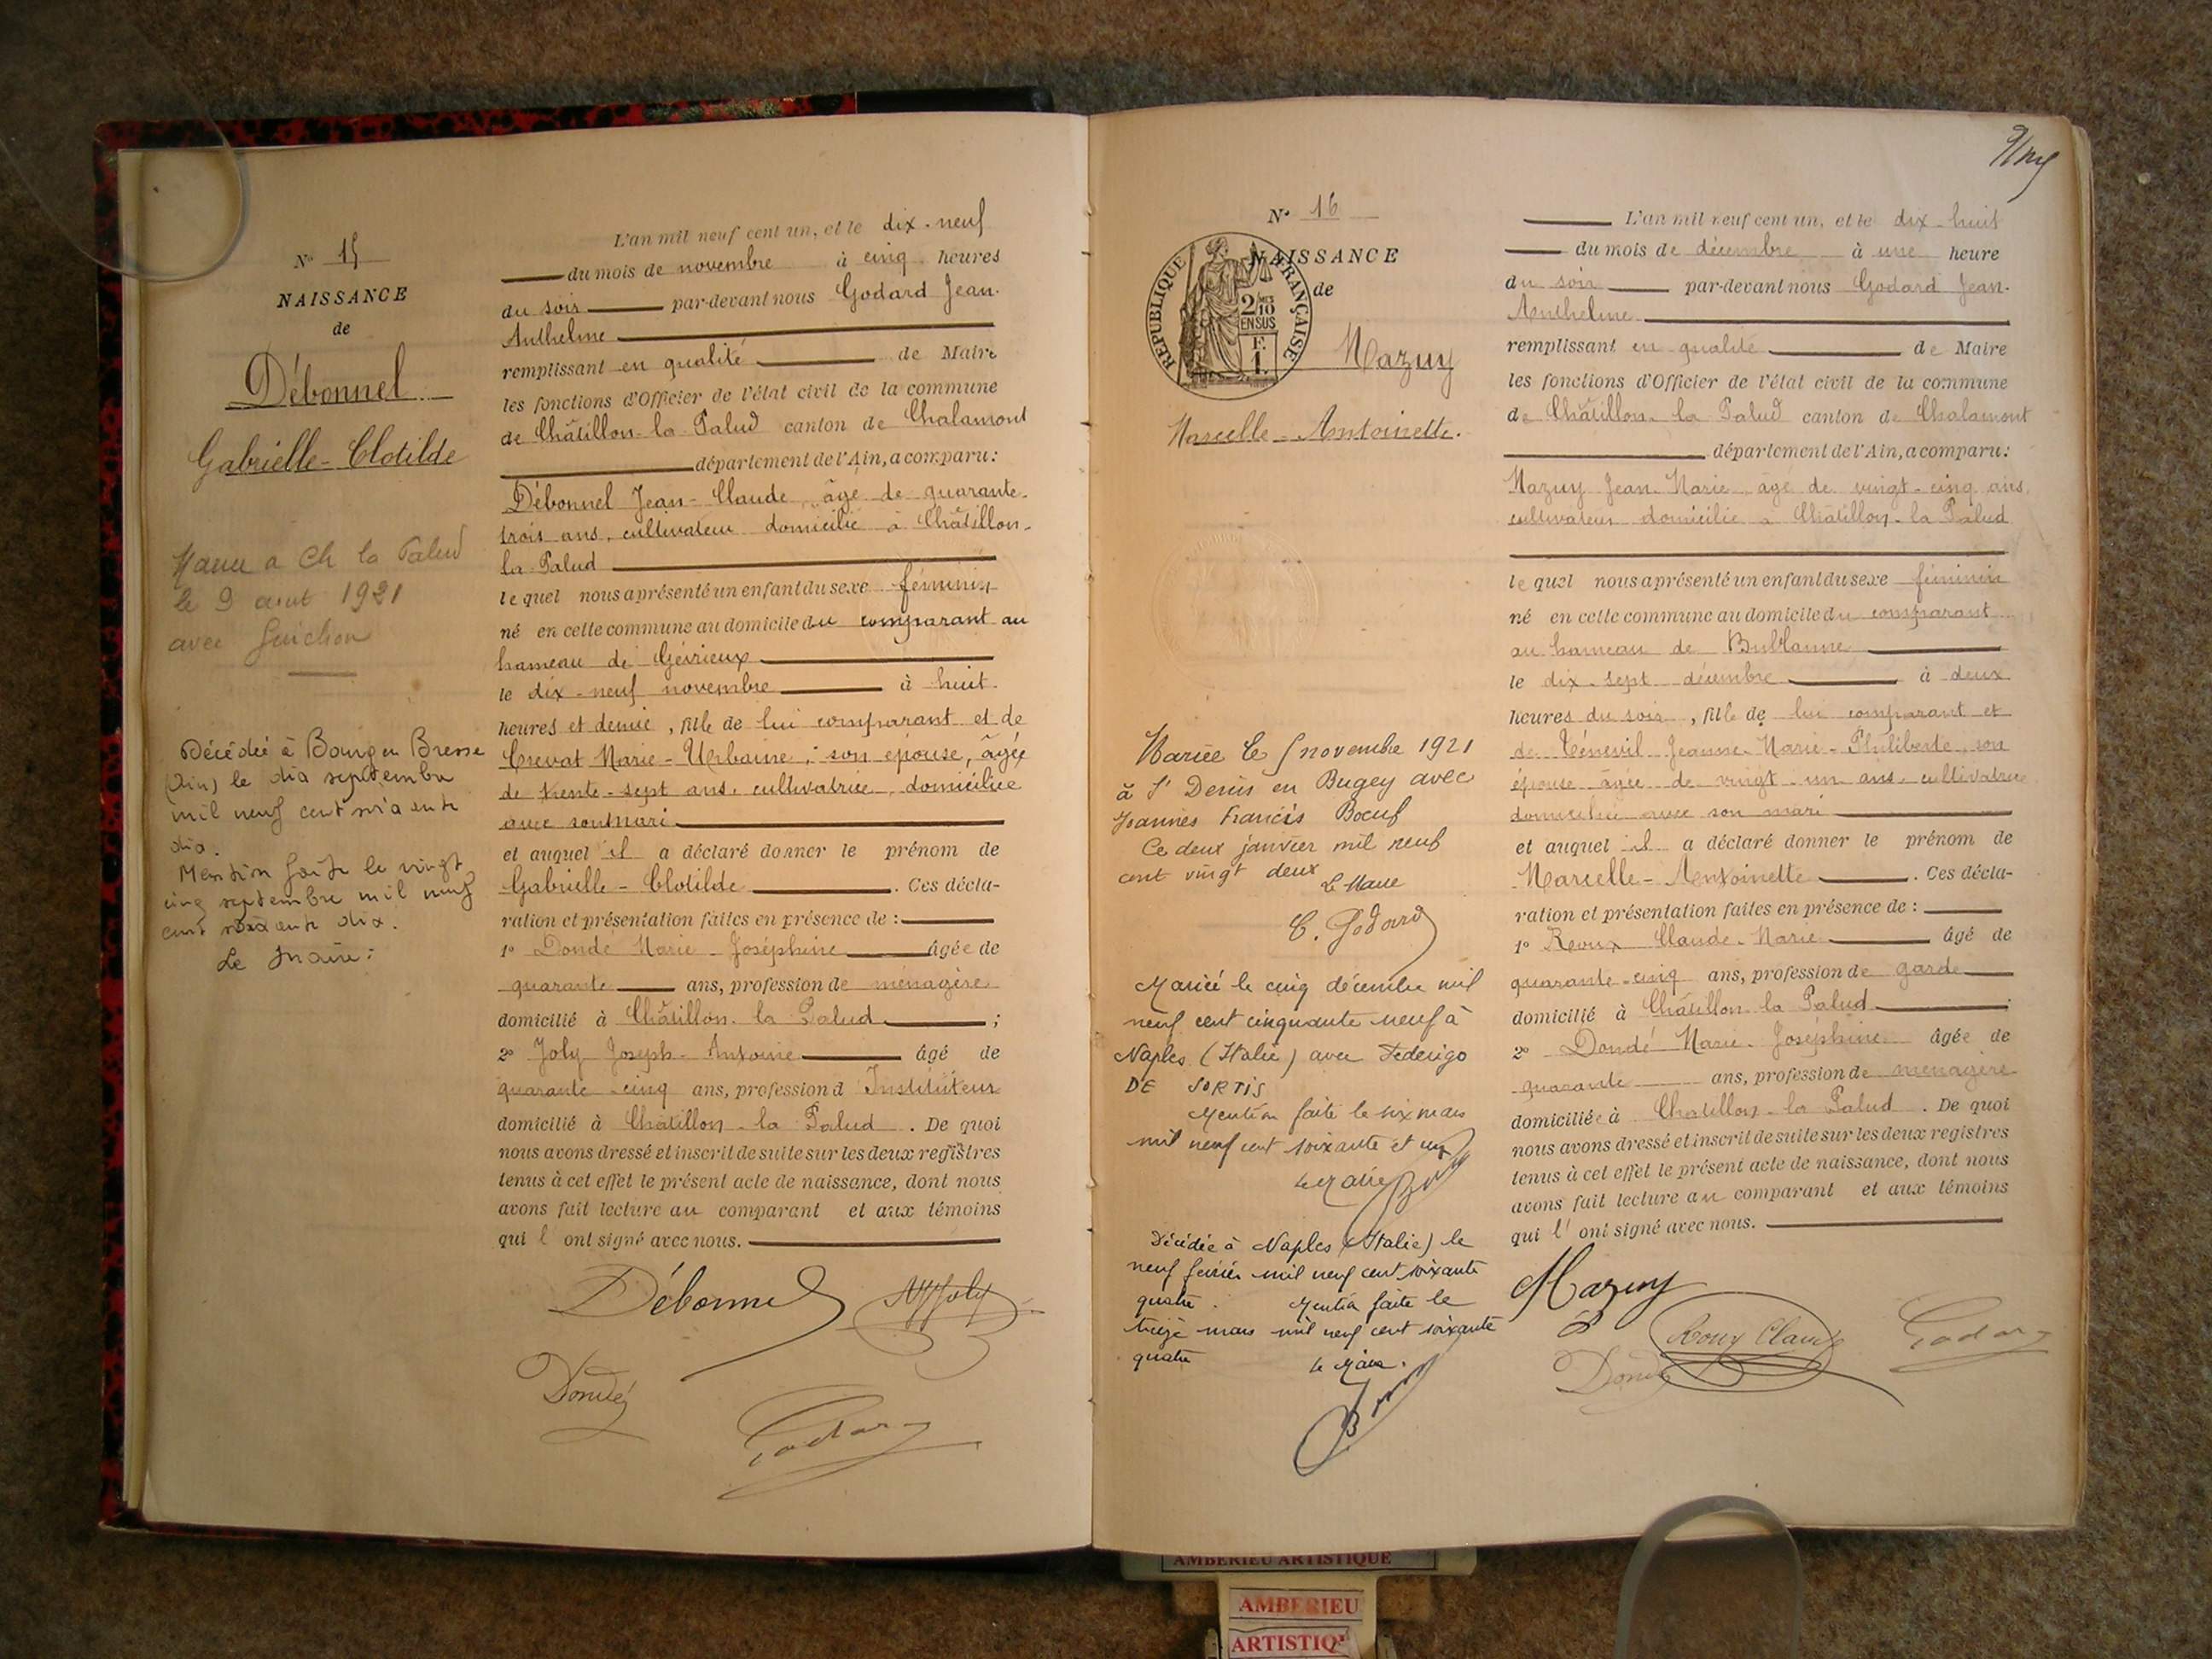 N° 15
NAISSANCE
de
Débonnel
Gabrielle-Clotilde
Mariée à Ch la Palud
le 9 aout 1921
avec Guichon
Décédée à Bourg en Bresse
(Ain) le dix septembre
mil neuf cent soixante
dix.
Mention faite le vingt
cinq septembre mil neuf
cent soixante dix.
Le Maire:
L'an mil neuf cent un, et le dix-neuf
du mois de novembre à cinq heures
du soir par-devant nous Godard Jean-
Anthelme
remplissant en qualité de Maire
les fonctions d'Officier de l'état civil de la commune
de Châtillon-la-Palud canton de Chalamont
département de l'Ain, a comparu:
Débonnel Jean-Claude, âgé de quarante-
trois ans, cultivateur domicilié à Châtillon-
la-Palud
lequel nous a présenté un enfant du sexe féminin
né en cette commune au domicile du comparant au
hameau de Gévrieux
le dix-neuf novembre à huit
heures et demie, fille de lui comparant et de
Crevat Marie-Urbaine, son épouse, âgée
de trente-sept ans, cultivatrice, domiciliée
avec son mari
et auquel il a déclaré donner le prénom de
Gabrielle-Clotilde. Ces décla-
ration et présentation faites en présence de:
1° Dondé Marie-Joséphine âgée de
quarante ans, profession de ménagère
domicilié à Châtillon-la-Palud;
2° Joly Joseph-Antoine âgé de
quarante-cinq ans, profession d'Instituteur
domicilié à Châtillon-la-Palud. De quoi
nous avons dressé et inscrit de suite sur les deux registres
tenus à cet effet le présent acte de naissance, dont nous
avons fait lecture au comparant et aux témoins
qui l'ont signé avec nous.
Débonnel Joly
Dondé
Godard
N° 16
NAISSANCE
de
RÉPUBLIQUE FRANÇAISE
2/10 EN SUS
F. 1.
Mazuy
Marcelle-Antoinette.
Mariée le 5 novembre 1921
à St Denis en Bugey avec
Joannès Francis Boeuf
Ce deux janvier mil neuf
cent vingt deux
Le Maire
C. Godard
Mariée le cinq décembre mil
neuf cent cinquante neuf à
Naples (Italie) avec Federigo
DE SORTIS
Mention faite le six mars
mil neuf cent soixante et un
Le Maire
Décédée à Naples (Italie) le
neuf février mil neuf cent soixante
quatre. Mention faite le
treize mars mil neuf cent soixante
quatre le Maire.
L'an mil neuf cent un, et le dix-huit
du mois de décembre à une heure
du soir par-devant nous Godard Jean-
Anthelme
remplissant en qualité de Maire
les fonctions d'Officier de l'état civil de la commune
de Châtillon-la-Palud canton de Chalamont
département de l'Ain, a comparu:
Mazuy Jean-Marie âgé de vingt-cinq ans,
cultivateur domicilié à Châtillon-la-Palud
lequel nous a présenté un enfant du sexe féminin
né en cette commune au domicile du comparant
au hameau de Bublanne
le dix-sept décembre à deux
heures du soir, fille de lui comparant et
de Jeanne-Marie-Philiberte, son
épouse âgée de vingt-un ans, cultivatrice
domiciliée avec son mari
et auquel il a déclaré donner le prénom de
Marcelle-Antoinette. Ces décla-
ration et présentation faites en présence de:
1° Roux Claude-Marie âgé de
quarante-cinq ans, profession de garde
domicilié à Châtillon-la-Palud;
2° Dondé Marie-Joséphine âgée de
quarante ans, profession de ménagère
domiciliée à Chatillon-la-Palud. De quoi
nous avons dressé et inscrit de suite sur les deux registres
tenus à cet effet le présent acte de naissance, dont nous
avons fait lecture au comparant et aux témoins
qui l'ont signé avec nous.
Mazuy
Roux Claude Godard
Dondé
AMBERIEU ARTISTIQUE
AMBERIEU
ARTISTIQ